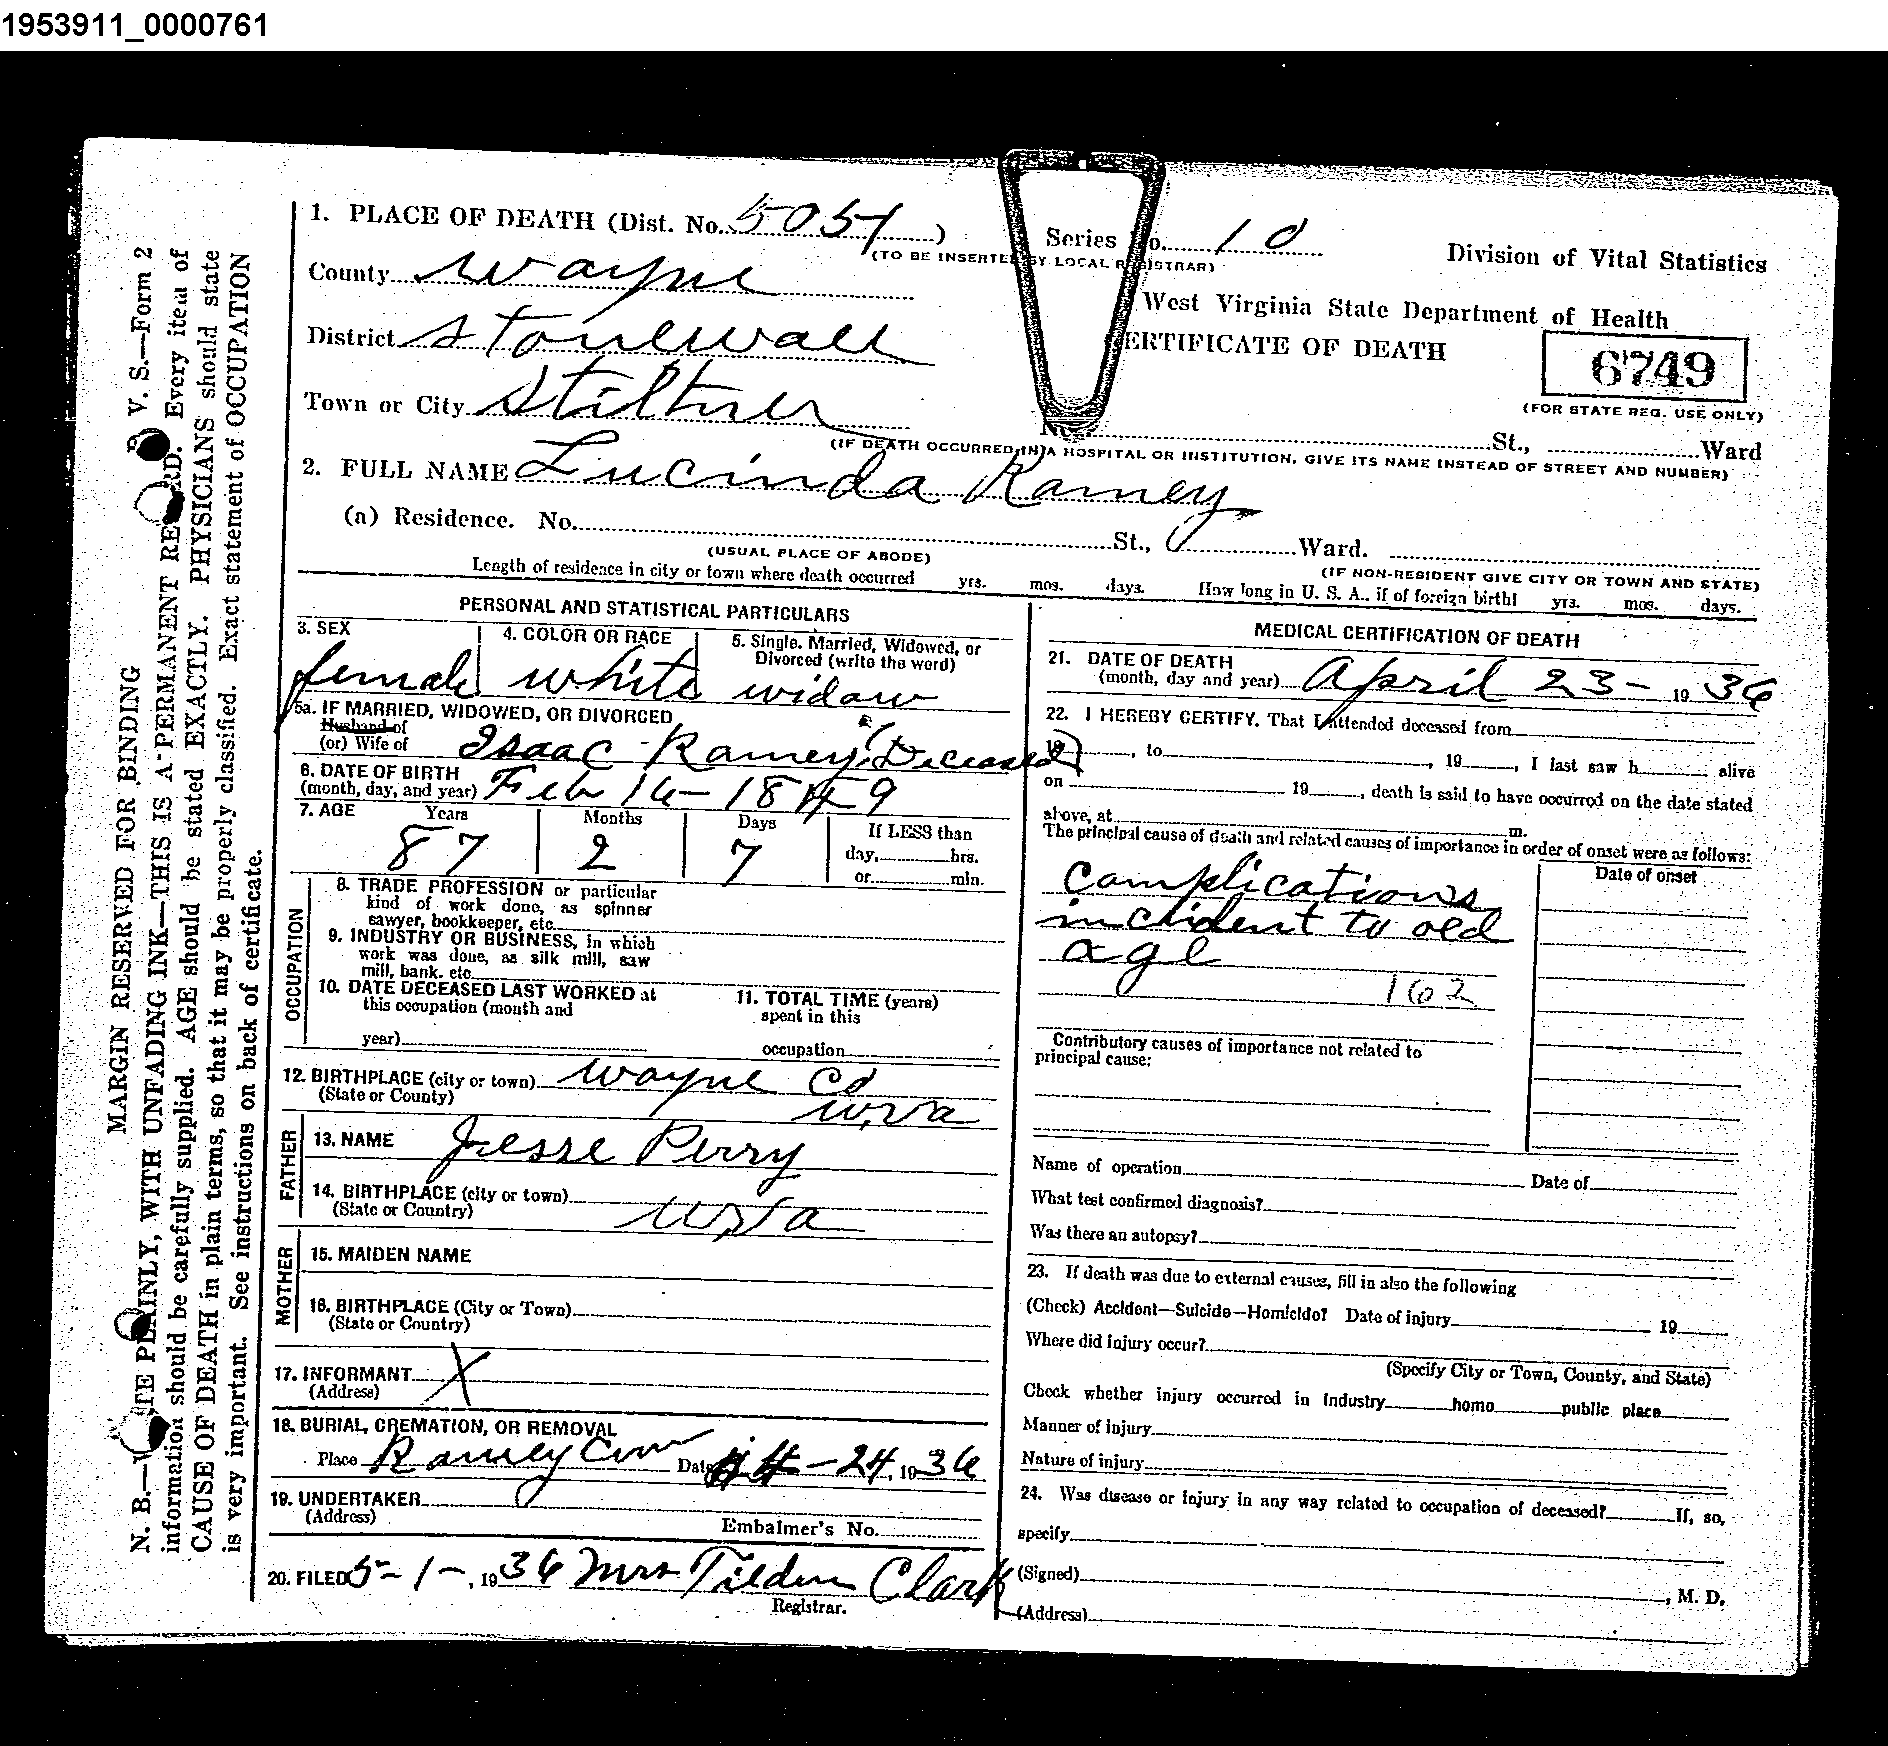 1953911_0000761
V. S.—Form 2
MARGIN RESERVED FOR BINDING
N. B.—WRITE PLAINLY, WITH UNFADING INK—THIS IS A PERMANENT RECORD. Every item of
information should be carefully supplied. AGE should be stated EXACTLY. PHYSICIANS should state
CAUSE OF DEATH in plain terms, so that it may be properly classified. Exact statement of OCCUPATION
is very important. See instructions on back of certificate.
1. PLACE OF DEATH (Dist. No. 5051)
Series No. 10
(TO BE INSERTED BY LOCAL REGISTRAR)
Division of Vital Statistics
County Wayne
West Virginia State Department of Health
District Stonewall
CERTIFICATE OF DEATH
6749
(FOR STATE REG. USE ONLY)
Town or City Stiltner
No. St., Ward
(IF DEATH OCCURRED IN A HOSPITAL OR INSTITUTION, GIVE ITS NAME INSTEAD OF STREET AND NUMBER)
2. FULL NAME Lucinda Ramey
(a) Residence. No. St., Ward.
(USUAL PLACE OF ABODE)
(IF NON-RESIDENT GIVE CITY OR TOWN AND STATE)
Length of residence in city or town where death occurred yrs. mos. days. How long in U. S. A., if of foreign birth? yrs. mos. days.
PERSONAL AND STATISTICAL PARTICULARS
3. SEX
female
4. COLOR OR RACE
white
5. Single, Married, Widowed, or
Divorced (write the word)
widow
5a. IF MARRIED, WIDOWED, OR DIVORCED
Husband of
(or) Wife of Isaac Ramey (Deceased)
6. DATE OF BIRTH
(month, day, and year) Feb 16 - 1849
7. AGE Years Months Days If LESS than
87 2 7 day, hrs.
or min.
OCCUPATION
8. TRADE PROFESSION or particular
kind of work done, as spinner
sawyer, bookkeeper, etc.
9. INDUSTRY OR BUSINESS, in which
work was done, as silk mill, saw
mill, bank, etc.
10. DATE DECEASED LAST WORKED at
this occupation (month and
year)
11. TOTAL TIME (years)
spent in this
occupation
12. BIRTHPLACE (city or town) Wayne Co
(State or County) W.Va
FATHER
13. NAME Jesse Perry
14. BIRTHPLACE (city or town)
(State or Country) W Va
MOTHER
15. MAIDEN NAME
16. BIRTHPLACE (City or Town)
(State or Country)
17. INFORMANT X
(Address)
18. BURIAL, CREMATION, OR REMOVAL
Place Ramey Cem Date 4-24, 1936
19. UNDERTAKER
(Address)
Embalmer's No.
20. FILED 5-1-, 1936 Mrs Tilden Clark
Registrar.
MEDICAL CERTIFICATION OF DEATH
21. DATE OF DEATH
(month, day and year) April 23- 1936
22. I HEREBY CERTIFY, That I attended deceased from
19, to , 19, I last saw h alive
on 19, death is said to have occurred on the date stated
above, at m.
The principal cause of death and related causes of importance in order of onset were as follows:
Date of onset
Complications
incident to old
age
162
Contributory causes of importance not related to
principal cause:
Name of operation Date of
What test confirmed diagnosis?
Was there an autopsy?
23. If death was due to external causes, fill in also the following
(Check) Accident—Suicide—Homicide? Date of injury 19
Where did injury occur?
(Specify City or Town, County, and State)
Check whether injury occurred in industry home public place
Manner of injury
Nature of injury
24. Was disease or injury in any way related to occupation of deceased? If, so,
specify
(Signed) , M. D.
(Address)